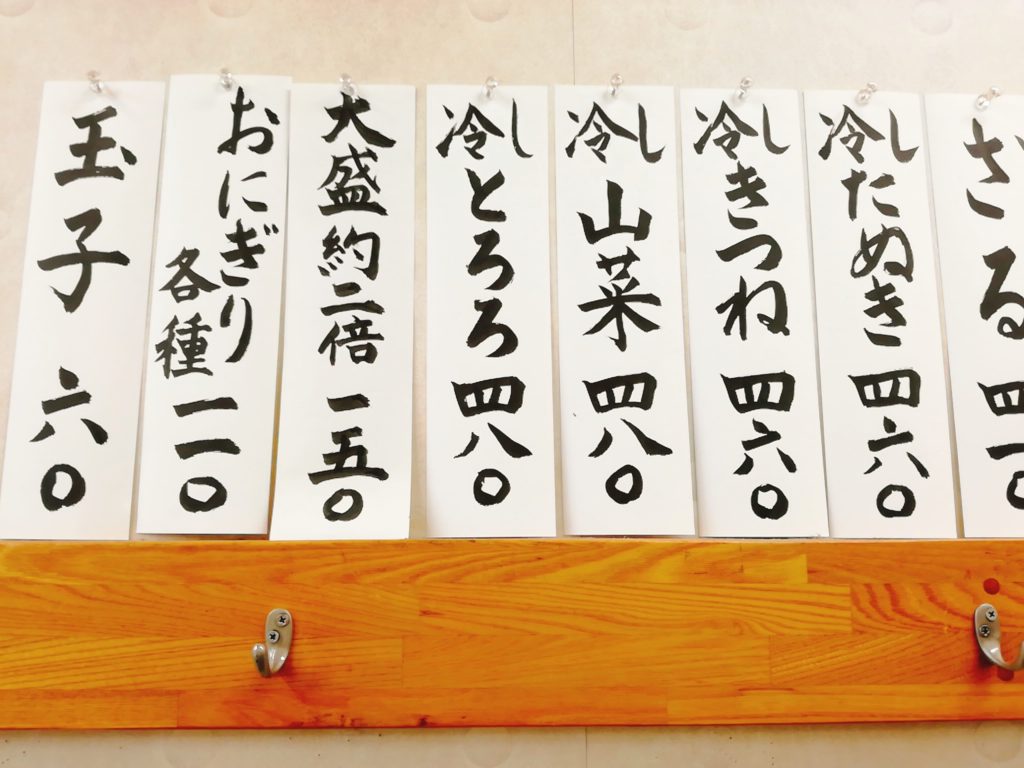 ざる 四一〇
冷したぬき 四六〇
冷しきつね 四六〇
冷し山菜 四八〇
冷しとろろ 四八〇
大盛約二倍 一五〇
おにぎり各種 一一〇
玉子 六〇